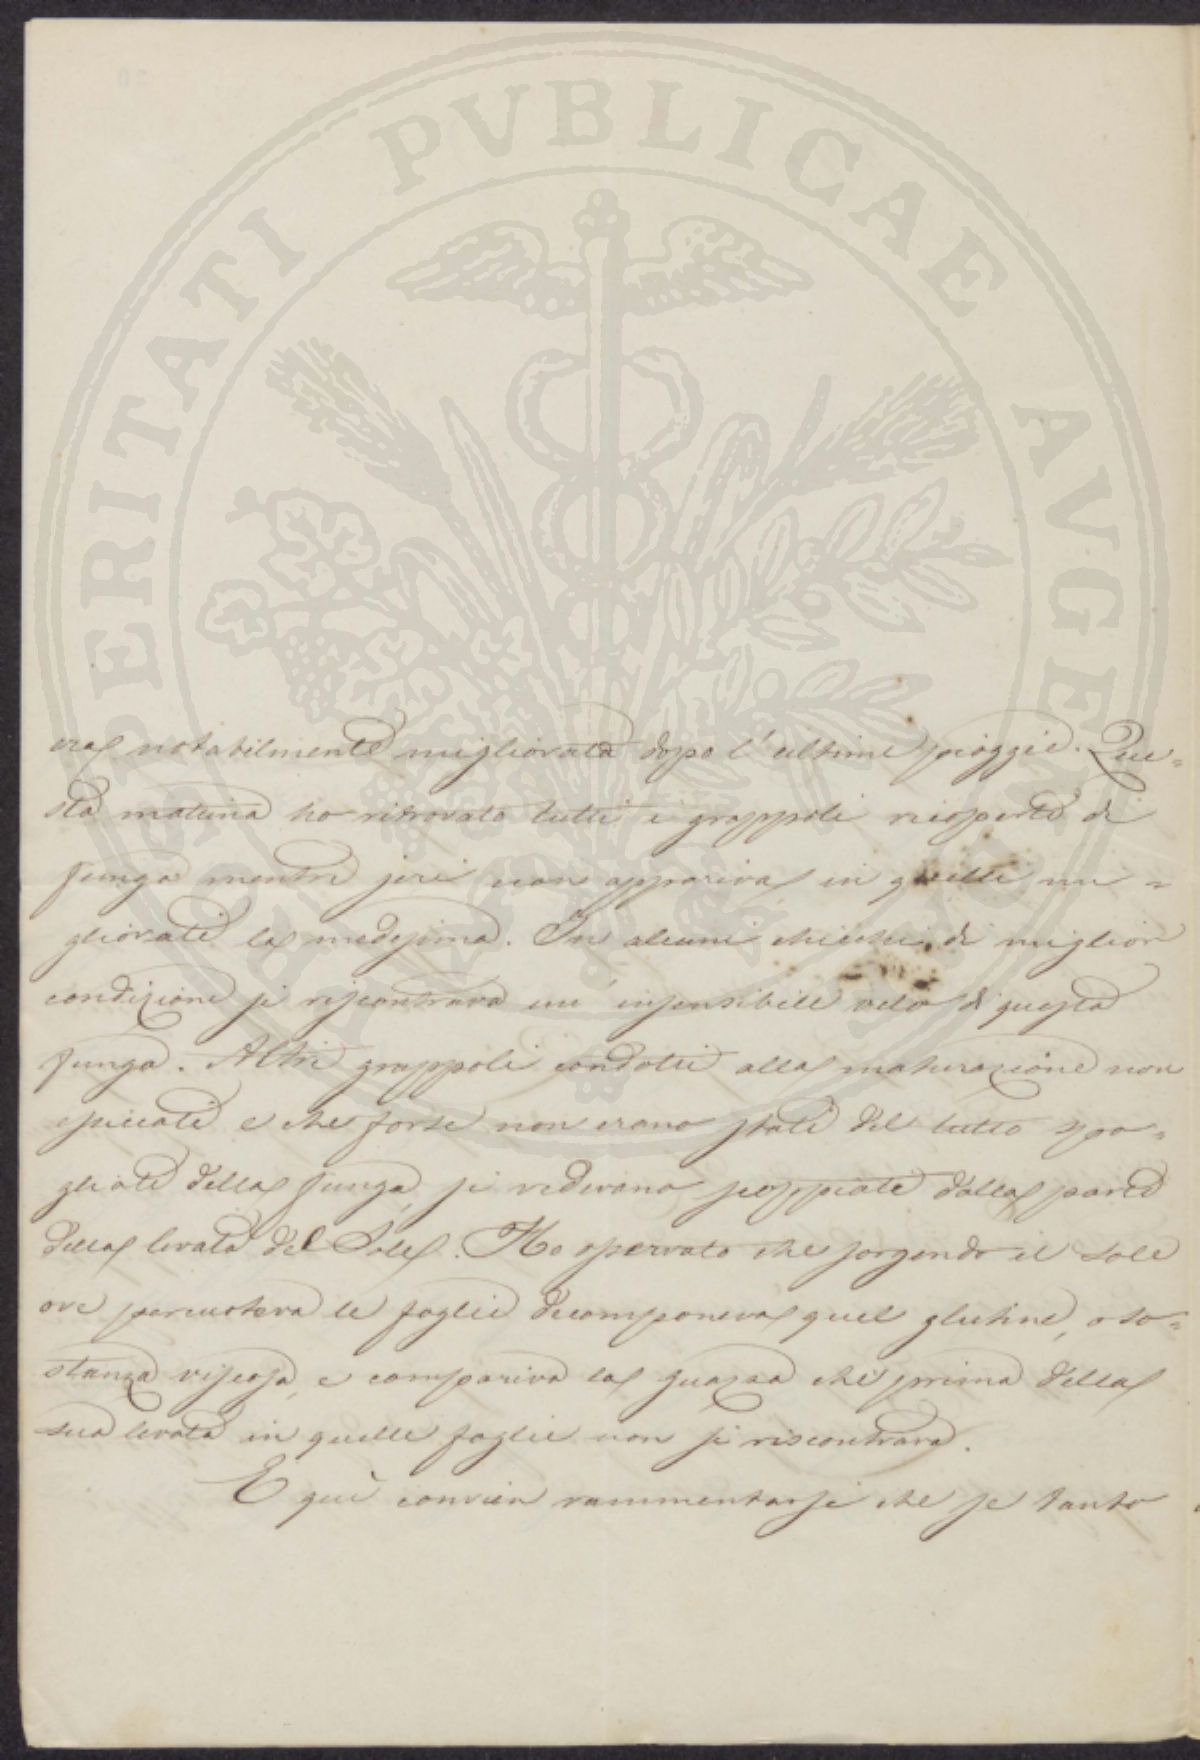 PROSPERITATI PVBLICAE AVGENDAE
era notabilmente migliorata dopo l'ultime pioggie. Que=
sta matina ho ritrovato tutti i grappoli riesperte di
funga mentre jeri non appariva in quelli mi=
gliorati la medesima. In alcuni chicchi di miglior
condizione si riscontrava un' insensibile velo di questa
funga. Altri grappoli condotti alla maturazione non
spiccati e che forse non erano stati del tutto spo=
gliati della funga, si vedevano scoppiati dalla parte
della levata del Sole. Ho osservato che sorgendo il sole
ove percuoteva le foglie decomponeva quel glutine, o so=
stanza viscosa, e compariva la guazza che prima della
sua levata in quelle foglie non si riscontrava.
E quì convien rammentarsi che se tanto